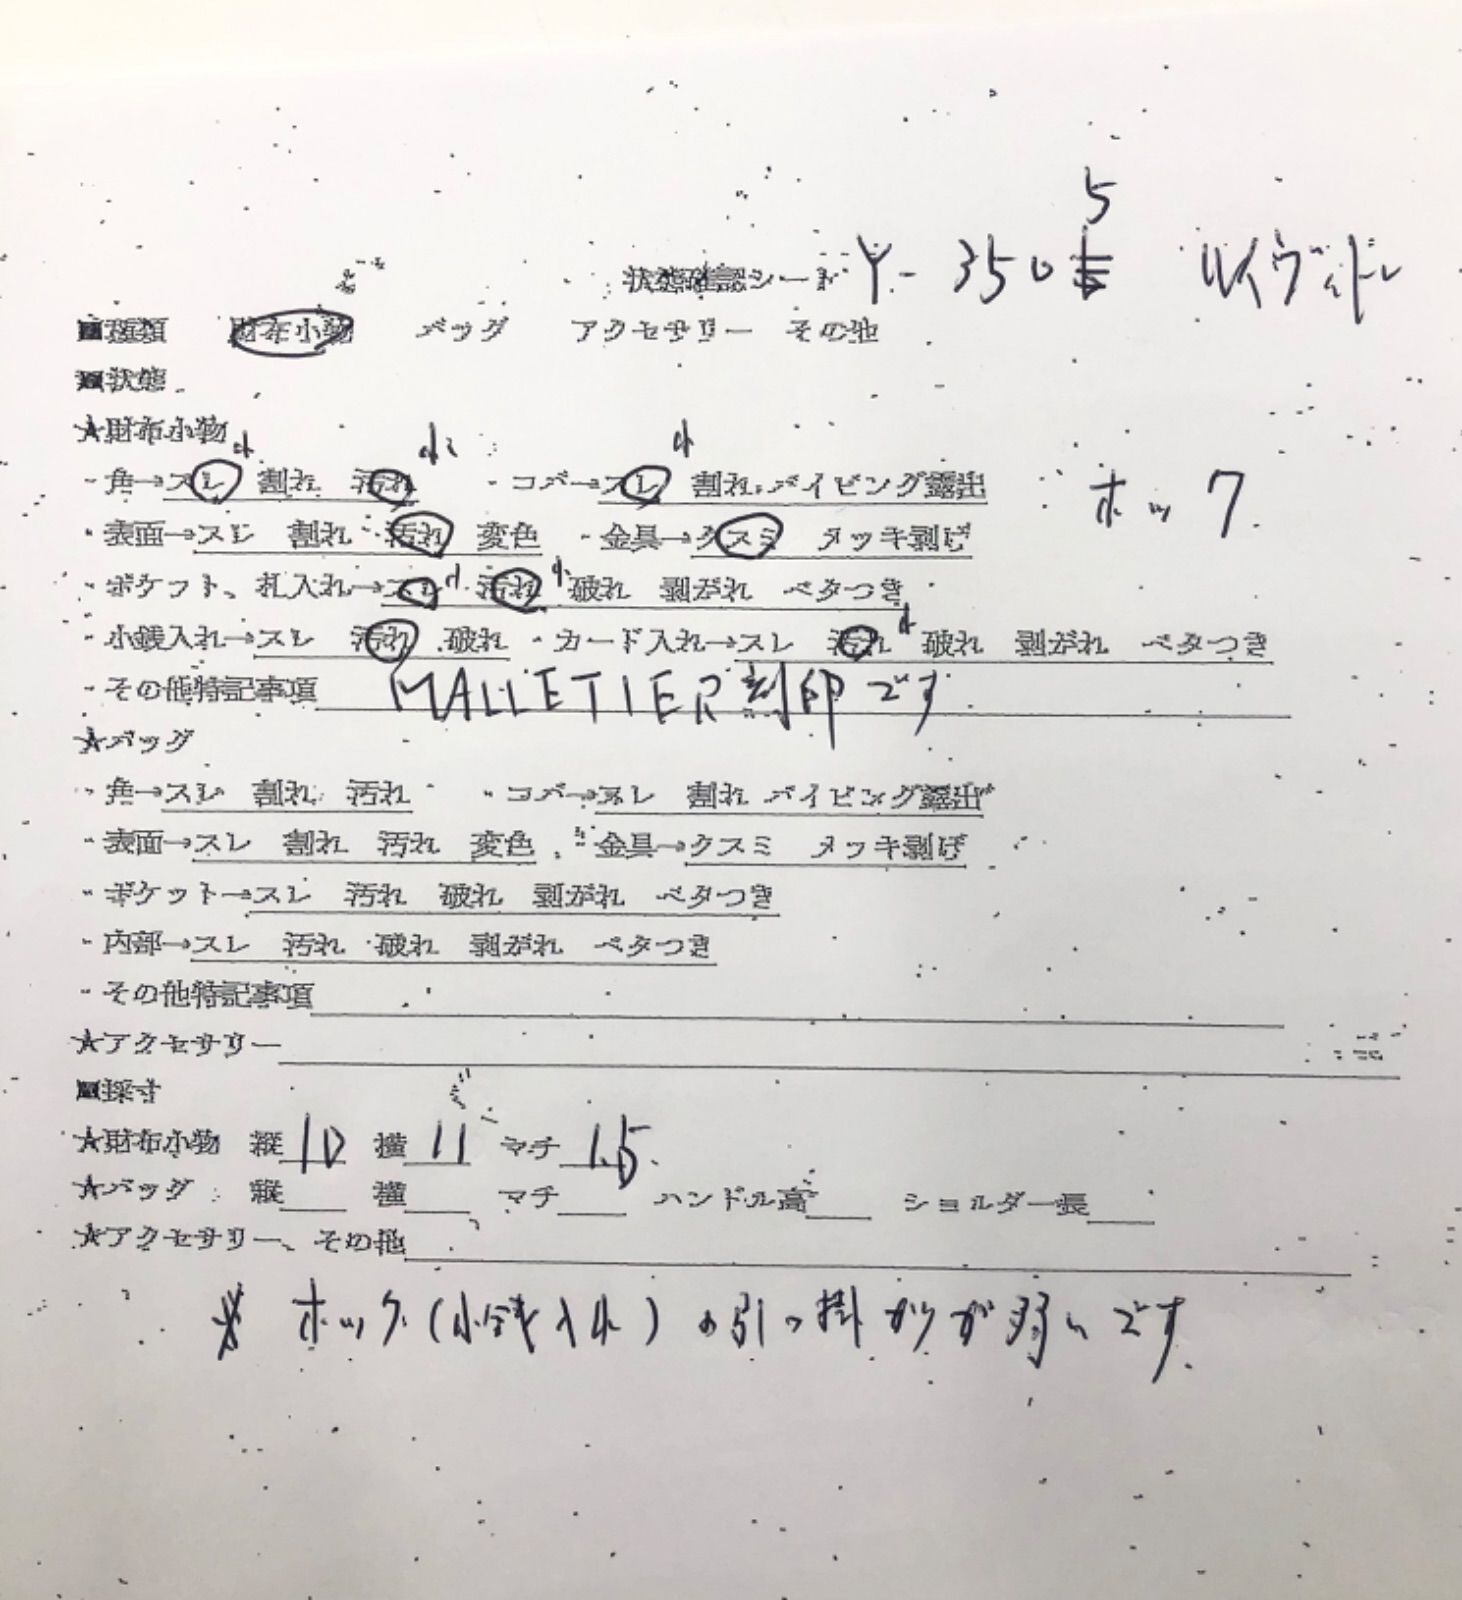 5
状態確認シート Y-350 ルイヴィトン
■種類 財布小物 バッグ アクセサリー その他
■状態
★財布小物
小 小 小
・角→スレ 割れ 汚れ ・コバ→スレ 割れ パイピング露出 ホック
・表面→スレ 割れ 汚れ 変色 ・金具→クスミ メッキ剥げ
・ポケット、札入れ→スレ 小 汚れ 小 破れ 剥がれ ベタつき
・小銭入れ→スレ 汚れ 破れ ・カード入れ→スレ 汚れ 小 破れ 剥がれ ベタつき
・その他特記事項 MALLETIER刻印です
★バッグ
・角→スレ 割れ 汚れ ・コバ→スレ 割れ パイピング露出
・表面→スレ 割れ 汚れ 変色 ・金具→クスミ メッキ剥げ
・ポケット→スレ 汚れ 破れ 剥がれ ベタつき
・内部→スレ 汚れ 破れ 剥がれ ベタつき
・その他特記事項
★アクセサリー
■採寸
★財布小物 縦 10 横 11 マチ 1.5
★バッグ 縦 横 マチ ハンドル高 ショルダー長
★アクセサリー、その他
※ ホック(小銭入れ)の引っ掛かりが弱いです